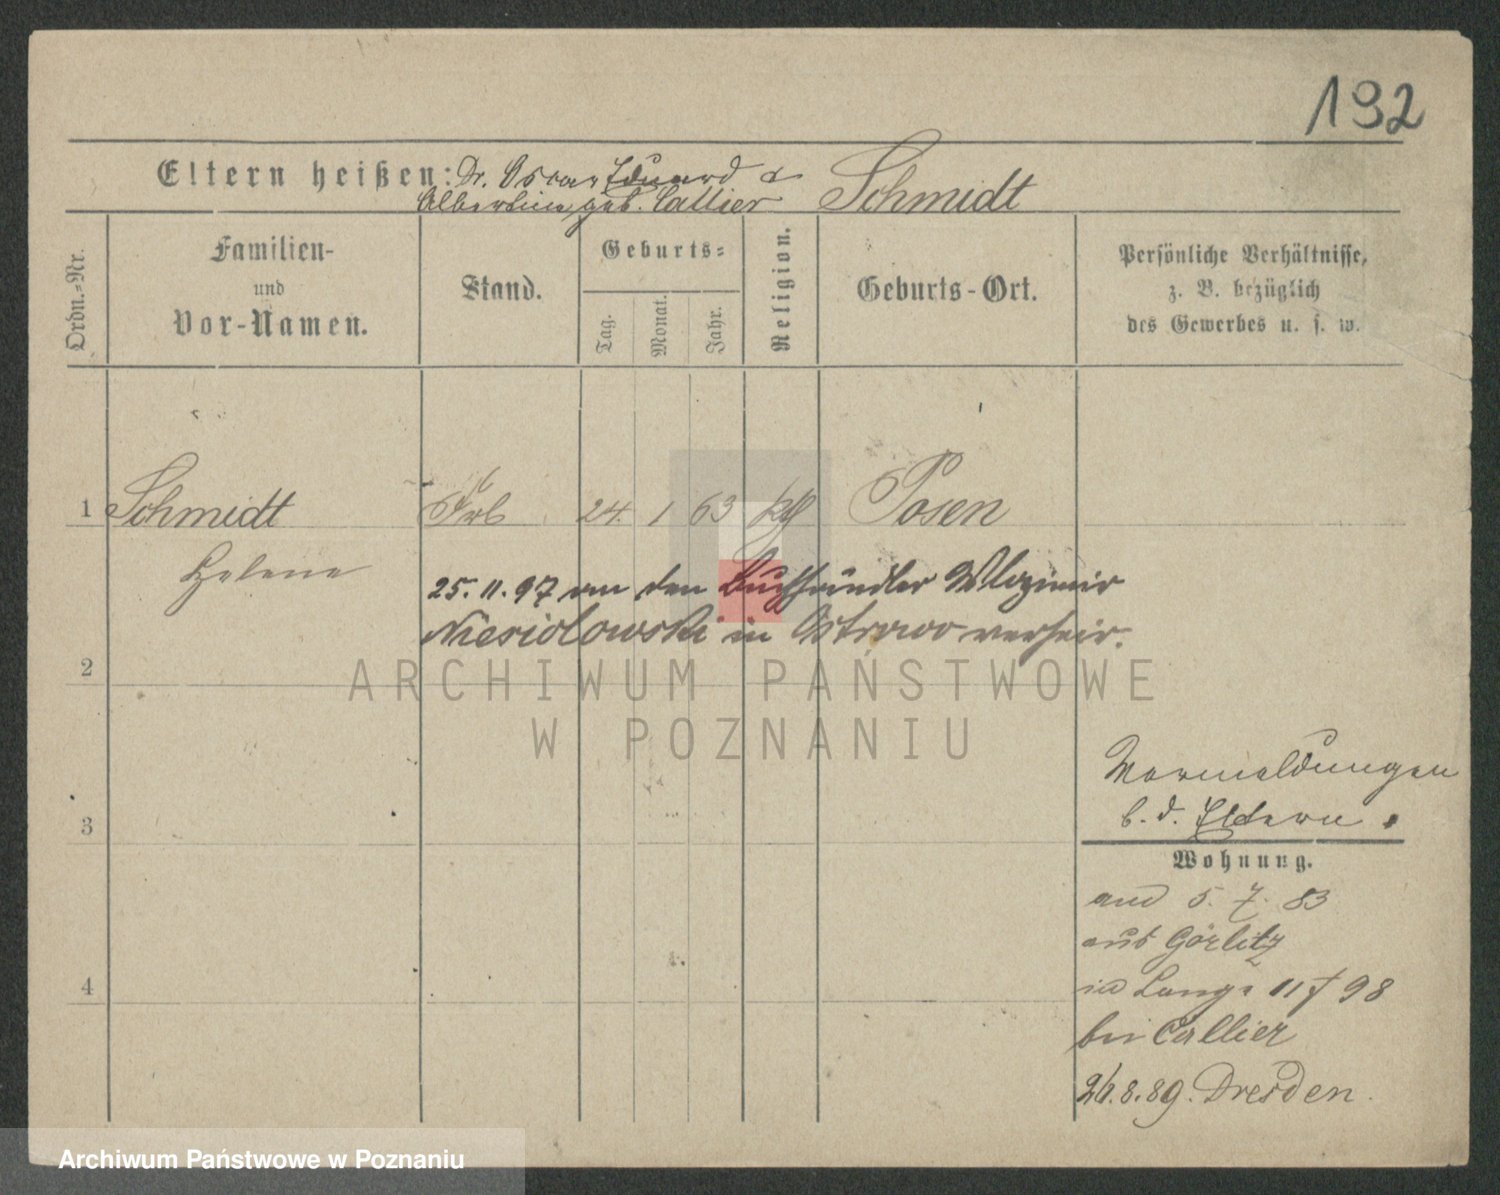 192
Eltern heißen: Dr. Oscar Eduard &
Albertine geb. Callier Schmidt
Ordn.=Nr.
Familien-
und
Vor-Namen.
Stand.
Geburts=
Tag.
Monat.
Jahr.
Religion.
Geburts-Ort.
Persönliche Verhältnisse,
z. B. bezüglich
des Gewerbes u. s. w.
1 Schmidt 24. 1 63 Posen
Helene
25. 11. 97 an den Buchhändler Wlozimir
Niesiolowski in Ostrowo verheir.
2
ARCHIWUM PAŃSTWOWE
W POZNANIU
Vormeldungen
b. d. Eltern.
3
Wohnung.
5. 7. 83
aus Görlitz
4
98
bei Callier
26.8.89. Dresden.
Archiwum Państwowe w Poznaniu